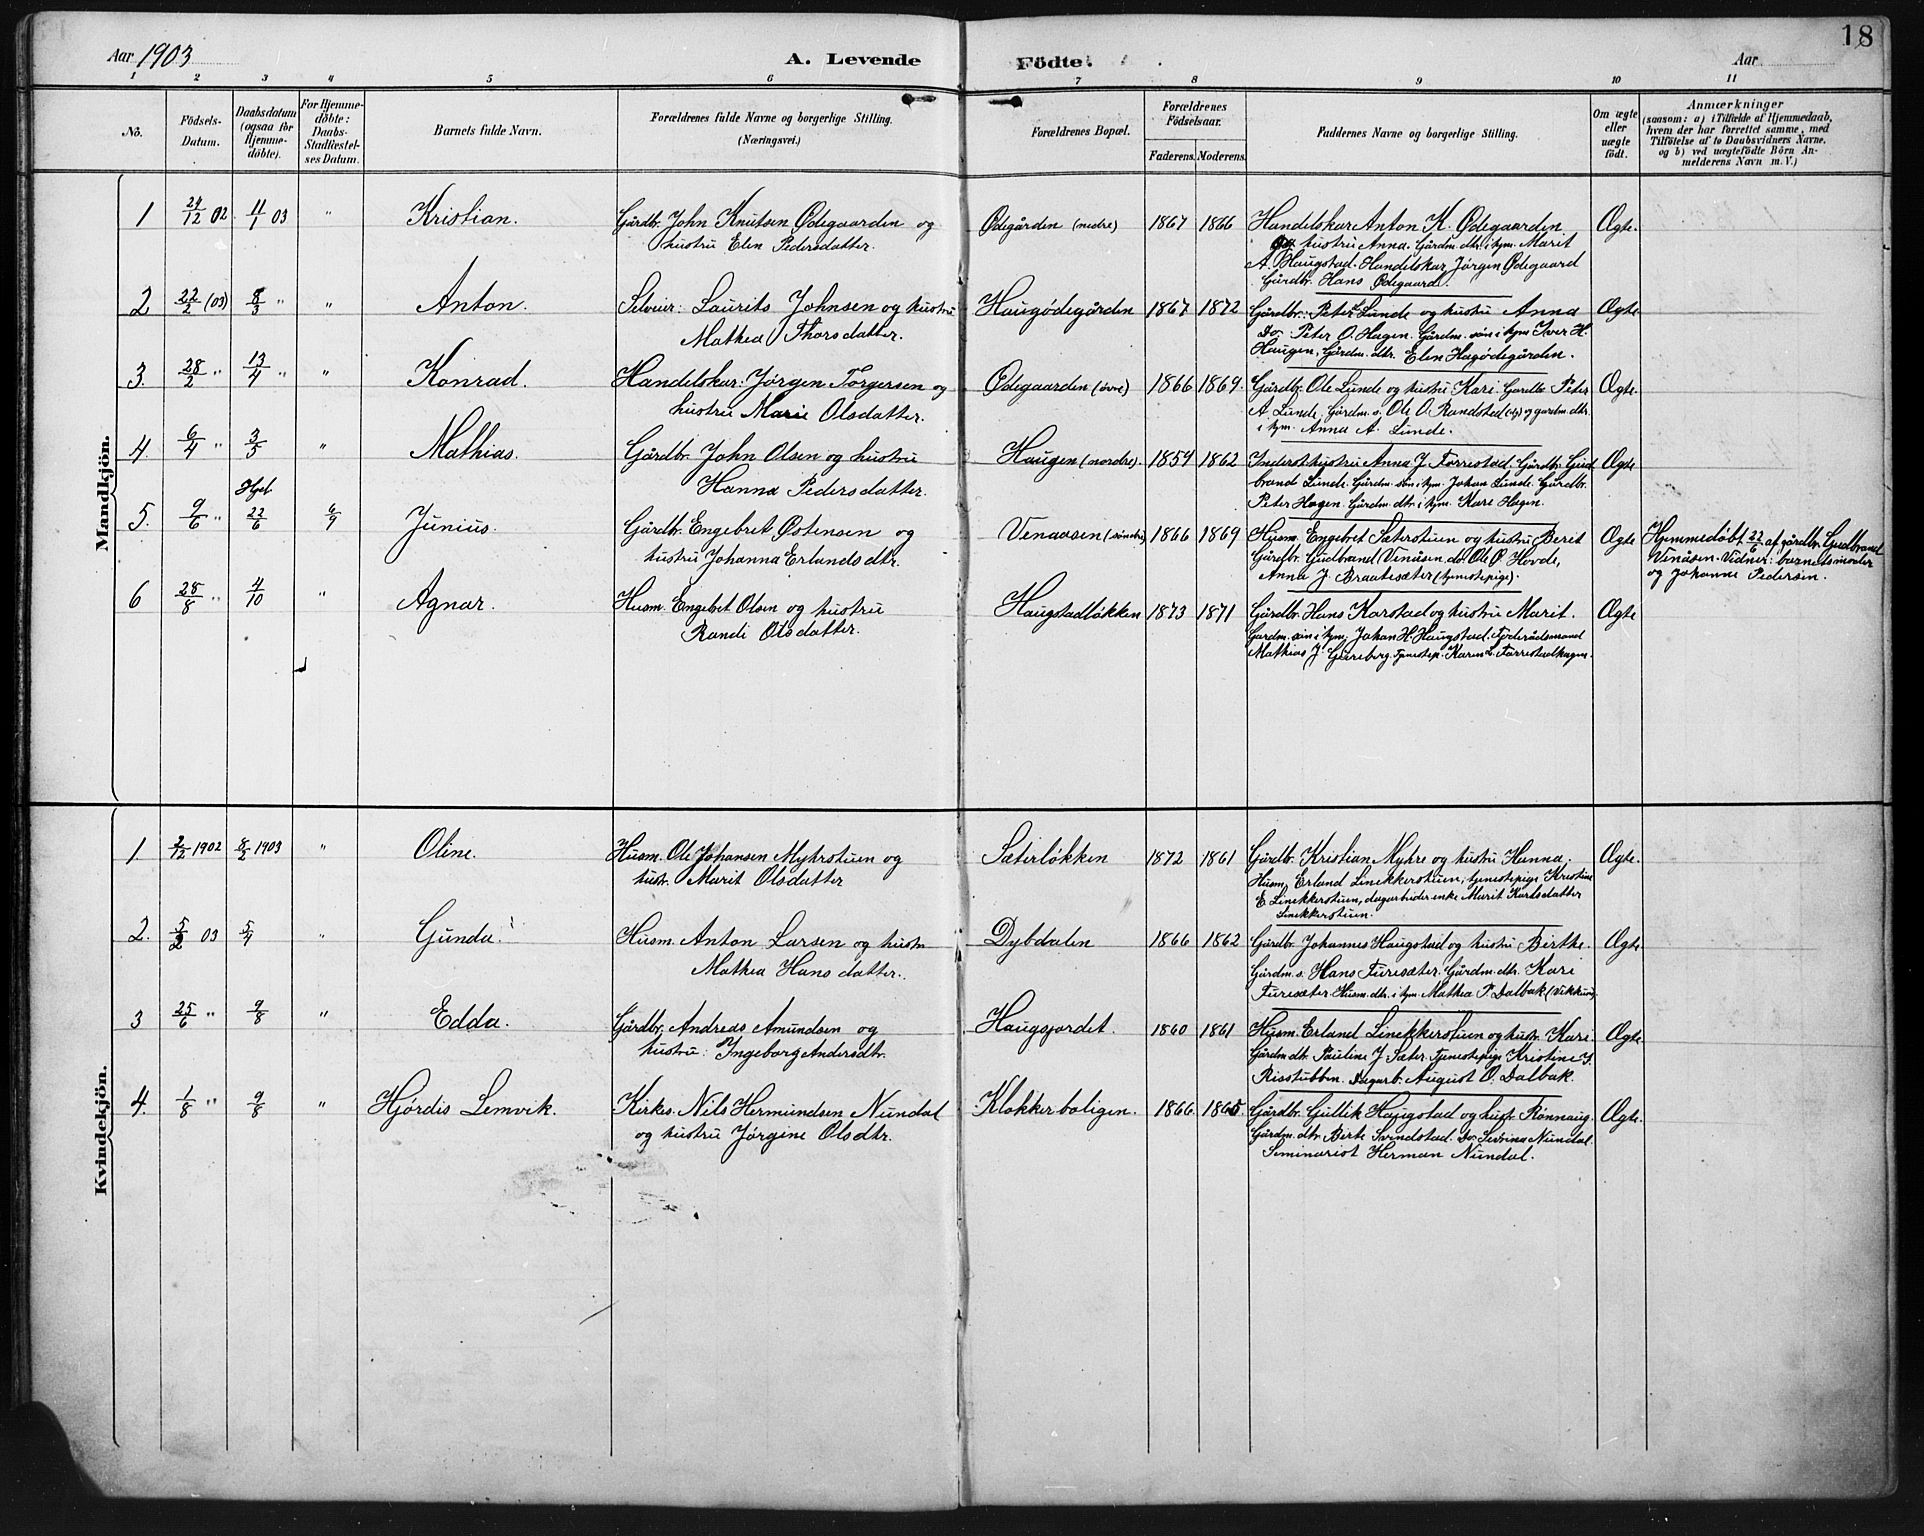 18
Aar 1903
A. Levende Födte.
Aar
1 2 3 4 5 6 7 8 9 10 11
No.
Födsels-Datum.
Daabsdatum (ogsaa for Hjemme-döbte).
For Hjemme-döbte: Daabs-Stadfæstel-ses Datum.
Barnets fulde Navn.
Forældrenes fulde Navne og borgerlige Stilling. (Næringsvei.)
Forældrenes Bopæl.
Forældrenes Födselsaar.
Faderens. Moderens.
Faddernes Navne og borgerlige Stilling.
Om ægte eller uægte födt.
Anmærkninger
(saasom: a) i Tilfælde af Hjemmedaab, hvem der har forrettet samme, med Tilföielse af to Daabsvidners Navne, og b) ved uægtefödte Börn Anmelderens Navn m. V.)
Mandkjön.
1 24/12 02 11/1 03 " Kristian. Gårdbr. John Knutsen Ødegaarden og Ødegården (nedre) 1867 1866 Handelskar Anton K. Ødegaarden Ægte.
hustru Elen Pedersdatter. og hustru Anna. Gårdm. dtr. i tjm. Marit
A. Haugstad. Handelskar Jørgen Ødegaard
Gårdbr. Hans Ødegaard.
2 22/2 (03) 8/3 " " Anton. Selveier: Laurits Johnsen og hustru Haugødegården 1867 1872 Gårdbr.: Peter L. Lunde og hustru Anna Ægte
Mathea Thorsdatter. Do. Peter O. Hagen. Gårdm. søn i tjm Iver H.
Haugen, Gårdm. dtr. Elen Hagødegården.
3. 28/2 " 13/4 " " Konrad. Handelskar: Jørgen Torgersen og Ødegaarden (øvre) 1866 1869. Gårdbr. Ole Lunde og hustru Kari. Gardbr Peter Ægte.
hustru Marie Olsdatter. A. Lunde, Gårdm. s. Ole O. Randstad og gardm. dtr.
i tjm. Anna A. Lunde.
4. 6/4 " 3/5 " Mathias. Gårdbr. John Olsen og hustru Haugen (nordre). 1859 1862 Inderst hustru Anna J. Forrestad. Gårdbr. Gud Ægte
Hanna Pedersdatter. brand Lunde. Gårdm. søn i tjm. Johan Lunde. Gårdbr.
Peter Hagen. Gårdm. dtr. i tjm. Kari Hagen.
5. 9/6 " Hjd 22/6 6/9 Junius. Gårdbr. Engebret Østensen og Venaasen (søndre) 1866 1869 Husm. Engebret Sæterstuen og hustru Berit Ægte Hjemmedøbt 22/6 af gårdbr. Gudbrand
hustru Johanna Erlands dtr. Gårdbr. Gudbrand Venåsen, do. Ole Ø. Hovde, Venåsen. Vidner: barnets moder
Anna J. Braatesæter (tjenestepige). og Johanne Pedersen.
6 28/8 " 4/10 " Agnar. Husm. Engebret Olsen og hustru Haugstadløkken 1873 1871 Gårdbr. Hans Karstad og hustru Marit. Ægte
Randi Olsdatter. Gardm. søn i tjm. Johan H. Haugstad. Føderådsmand
Mathias J. Gjæreberg. Tjenestep. Karen L. Forrestadhagen.
Kvindekjön.
1 3/12 1902 8/2 1903 " Oline. Husm. Ole Johansen Myhrstuen og Sæterløkken 1872 1861 Gårdbr. Kristian Myhre og hustru Hanna. Ægte.
hustr. Marit Olsdatter Husm. Erland Linekkerstuen, tjenestepige Kristine
E. Linekkerstuen, dagarbeider enke Marit Karlsdatter
Linekkerstuen.
2. 5/2 03 5/4 " Gunda. Husm. Anton Larsen og hustru Dybdalen 1866 1862 Gårdbr. Johannes Haugstad og hustru Birthe. Ægte.
Mathea Hans datter. Gårdm. s. Hans Furesæter. Gårdm. dtr. Kari
Furesæter. Husm. dtr. i tjm. Mathea P. Dalbak (Vekkum).
3 25/6 " 9/8 " Edda. Gårdbr. Andreas Amundsen og Haugsjordet. 1860 1861 Husm. Erland Linekkerstuen og hustr. Kari. Ægte
hustru: Ingeborg Andersdtr. Gårdm dtr. Pauline J. Sæter. Tjenestepige Kristine S.
Risstubben. Dagarb. August O. Dalbak.
4. 1/8 " 9/8 " Hjørdis Lemvik. Kirkes. Nils Hermundsen Nundal Klokkerboligen. 1866 1865 Gårdbr. Gullik Haugstad og hustr. Rønnaug. Ægte.
og hustru Jørgine Olsdtr. Gårdm. dtr. Birte Svendstad. Do. Sevrina Nundal.
Seminarist Herman Nundal.